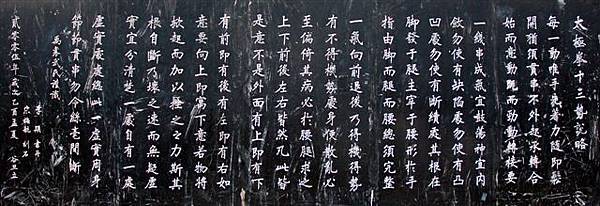 太極拳十三勢說略
每一動唯手先著力隨即鬆
開猶須貫串不外起承轉合
始而意動既而勁動轉接要
一線串成氣宜鼓蕩神宜內
斂勿使有缺陷處勿使有凸
凹處勿使有斷續處其根在
腳發于腿主宰于腰形于手
指由腳而腿而腰總須完整
一氣向前退後乃得機得勢
有不得機勢處身便散亂必
至偏倚其病必於腰腿求之
上下前後左右皆然凡此皆
是意不是外面有上即有下
有前即有後有左即有右如
意要向上即寓下意若物將
掀起而加以挫之之力斯其
根自斷乃壞之速而無疑虛
實宜分清楚一處自有一處
虛實處處總此一虛實周身
節節貫串勿令絲毫間斷
禹襄武氏
書丹
刻石
貳零零伍年歲次乙酉夏